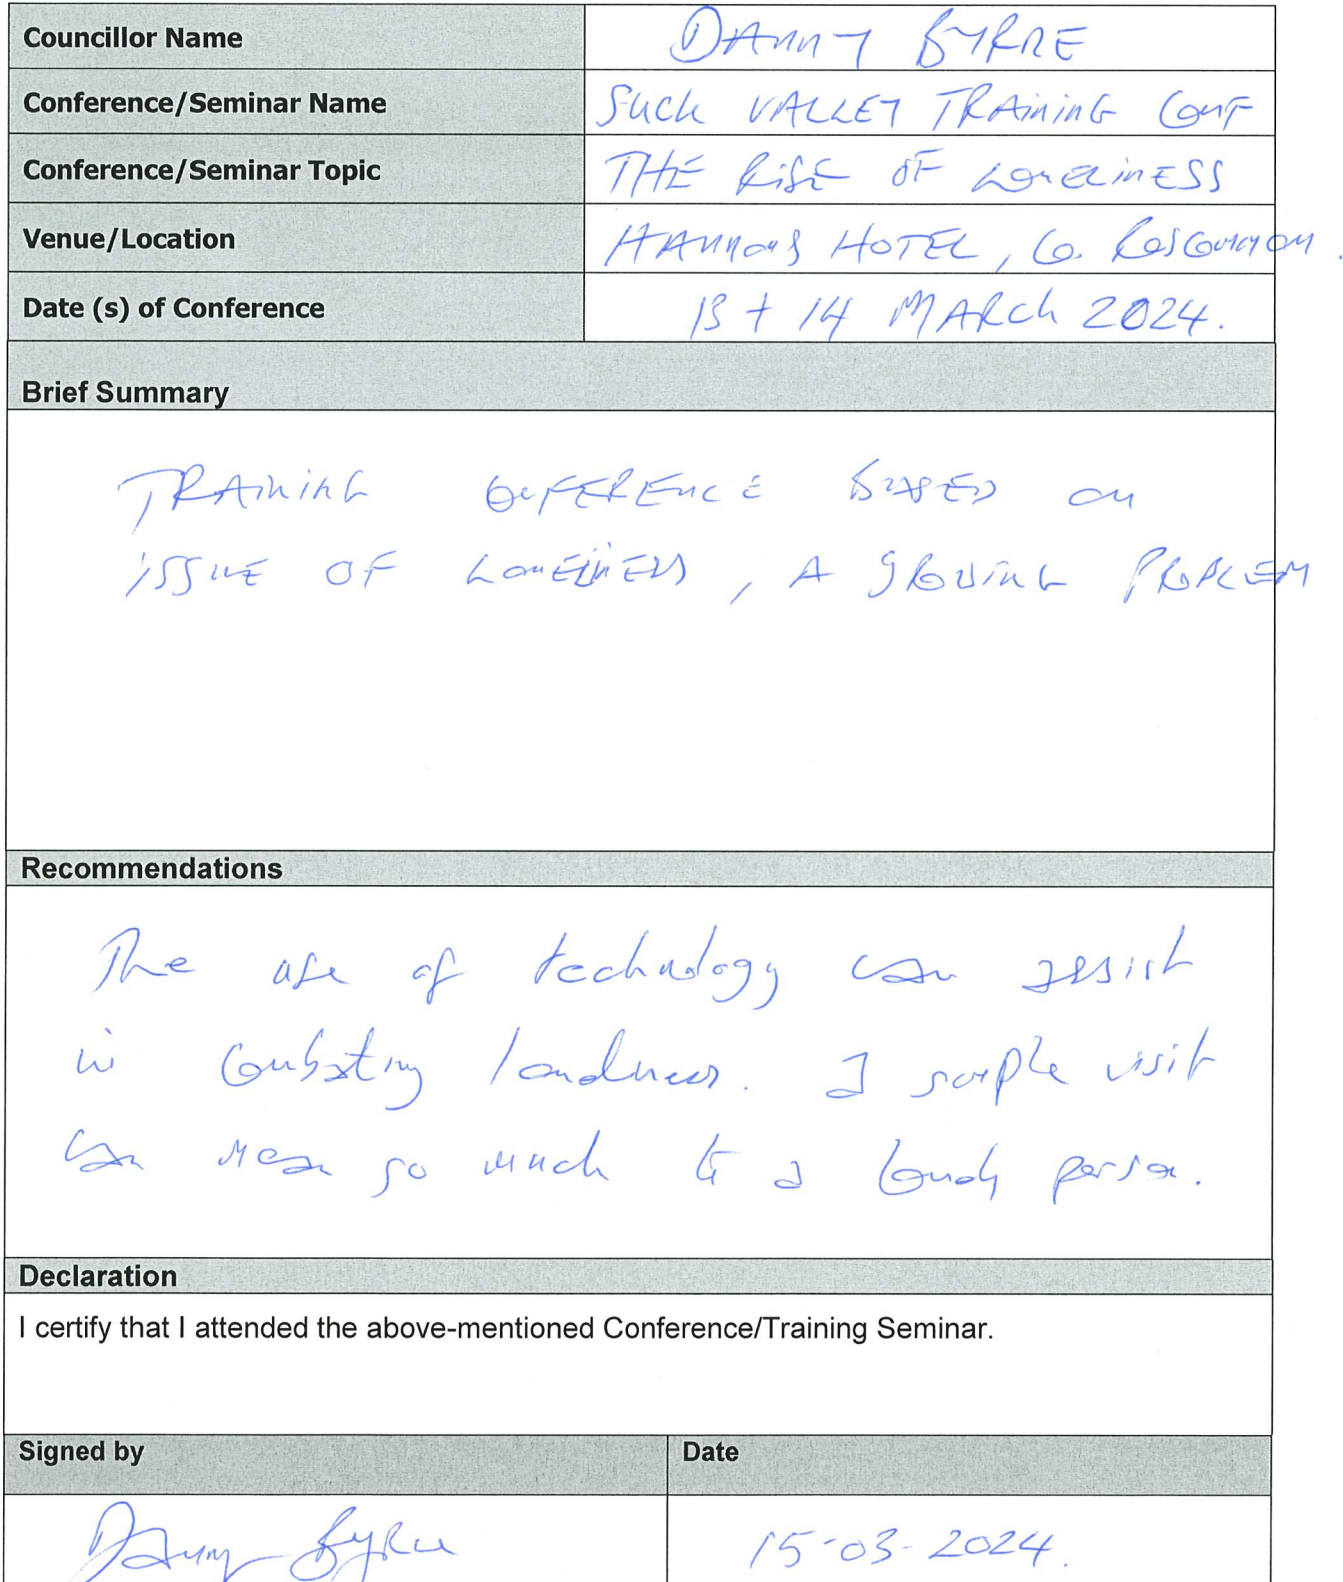 Councillor Name DANNY BYRNE
Conference/Seminar Name SUCK VALLEY TRAINING CONF
Conference/Seminar Topic THE RISE OF LONELINESS
Venue/Location HANNONS HOTEL, Co. ROSCOMMON.
Date (s) of Conference 13 + 14 MARCH 2024.
Brief Summary
TRAINING CONFERENCE BASED ON
ISSUE OF LONELINESS, A GROWING PROBLEM
Recommendations
The use of technology can assist
in combating loneliness. A simple visit
can mean so much to a lonely person.
Declaration
I certify that I attended the above-mentioned Conference/Training Seminar.
Signed by Date
Danny Byrne 15-03-2024.